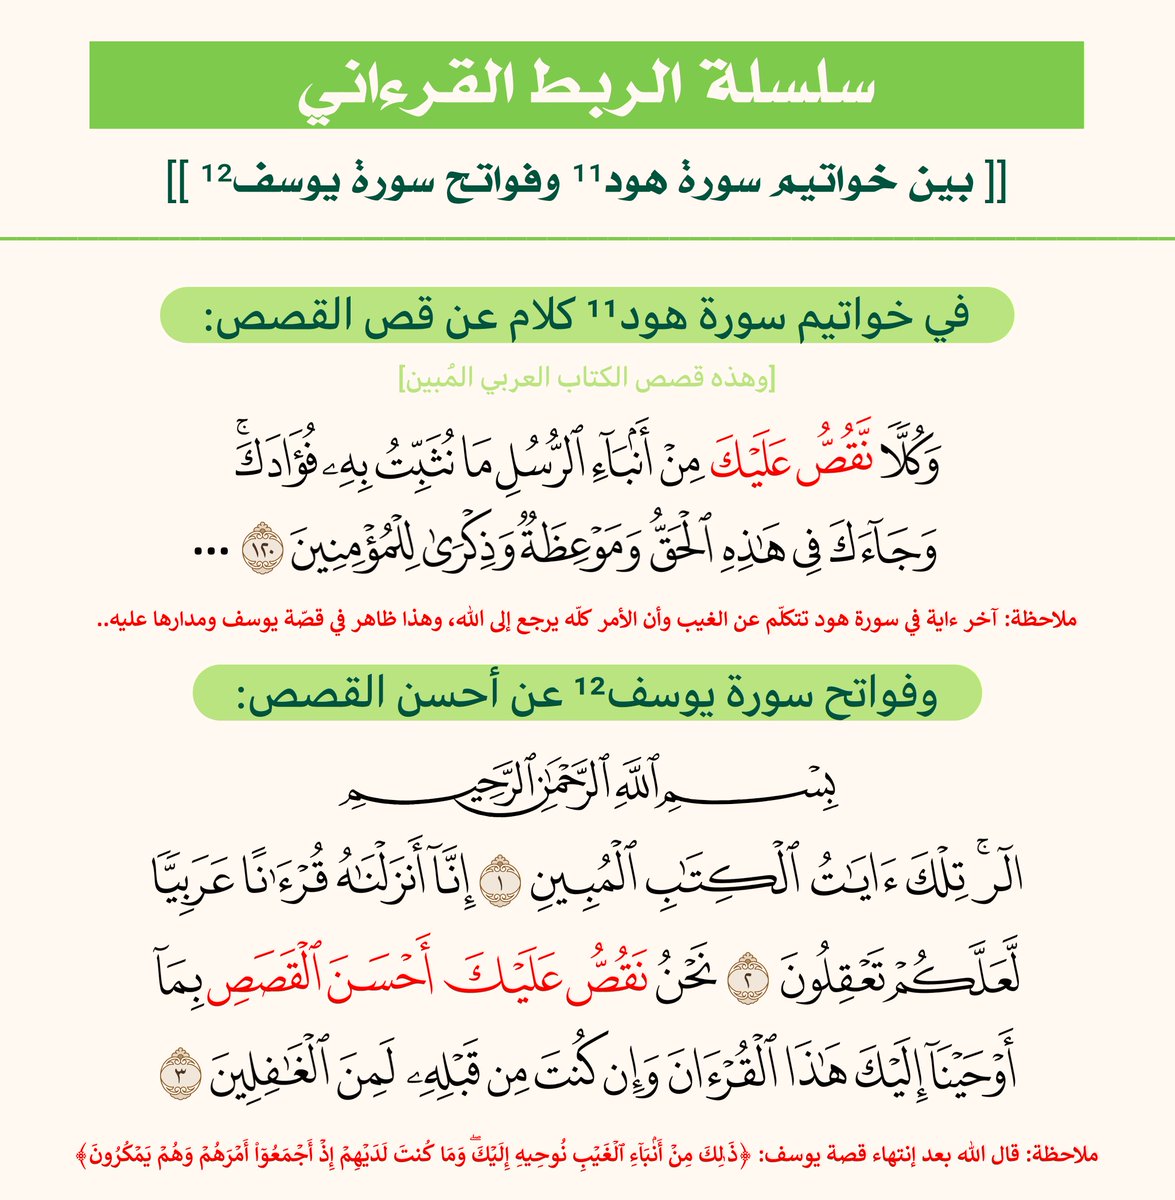 سلسلة الربط القرءاني
[[ بين خواتيم سورة هود¹¹ وفواتح سورة يوسف¹² ]]
في خواتيم سورة هود¹¹ كلام عن قص القصص:
[وهذه قصص الكتاب العربي المُبين]
وَكُلࣰّا نَّقُصُّ عَلَيۡكَ مِنۡ أَنۢبَآءِ ٱلرُّسُلِ مَا نُثَبِّتُ بِهِۦ فُؤَادَكَۚ
وَجَآءَكَ فِي هَٰذِهِ ٱلۡحَقُّ وَمَوۡعِظَةࣱ وَذِكۡرَىٰ لِلۡمُؤۡمِنِينَ ١٢٠ ...
ملاحظة: آخر ءاية في سورة هود تتكلّم عن الغيب وأن الأمر كلّه يرجع إلى الله، وهذا ظاهر في قصّة يوسف ومدارها عليه..
وفواتح سورة يوسف¹² عن أحسن القصص:
بِسۡمِ ٱللَّهِ ٱلرَّحۡمَٰنِ ٱلرَّحِيمِ
الٓرۚ تِلۡكَ ءَايَٰتُ ٱلۡكِتَٰبِ ٱلۡمُبِينِ ١ إِنَّآ أَنزَلۡنَٰهُ قُرۡءَٰنًا عَرَبِيࣰّا
لَّعَلَّكُمۡ تَعۡقِلُونَ ٢ نَحۡنُ نَقُصُّ عَلَيۡكَ أَحۡسَنَ ٱلۡقَصَصِ بِمَآ
أَوۡحَيۡنَآ إِلَيۡكَ هَٰذَا ٱلۡقُرۡءَانَ وَإِن كُنتَ مِن قَبۡلِهِۦ لَمِنَ ٱلۡغَٰفِلِينَ ٣
ملاحظة: قال الله بعد إنتهاء قصة يوسف: ﴿ذَٰلِكَ مِنۡ أَنۢبَآءِ ٱلۡغَيۡبِ نُوحِيهِ إِلَيۡكَۖ وَمَا كُنتَ لَدَيۡهِمۡ إِذۡ أَجۡمَعُوٓاْ أَمۡرَهُمۡ وَهُمۡ يَمۡكُرُونَ﴾